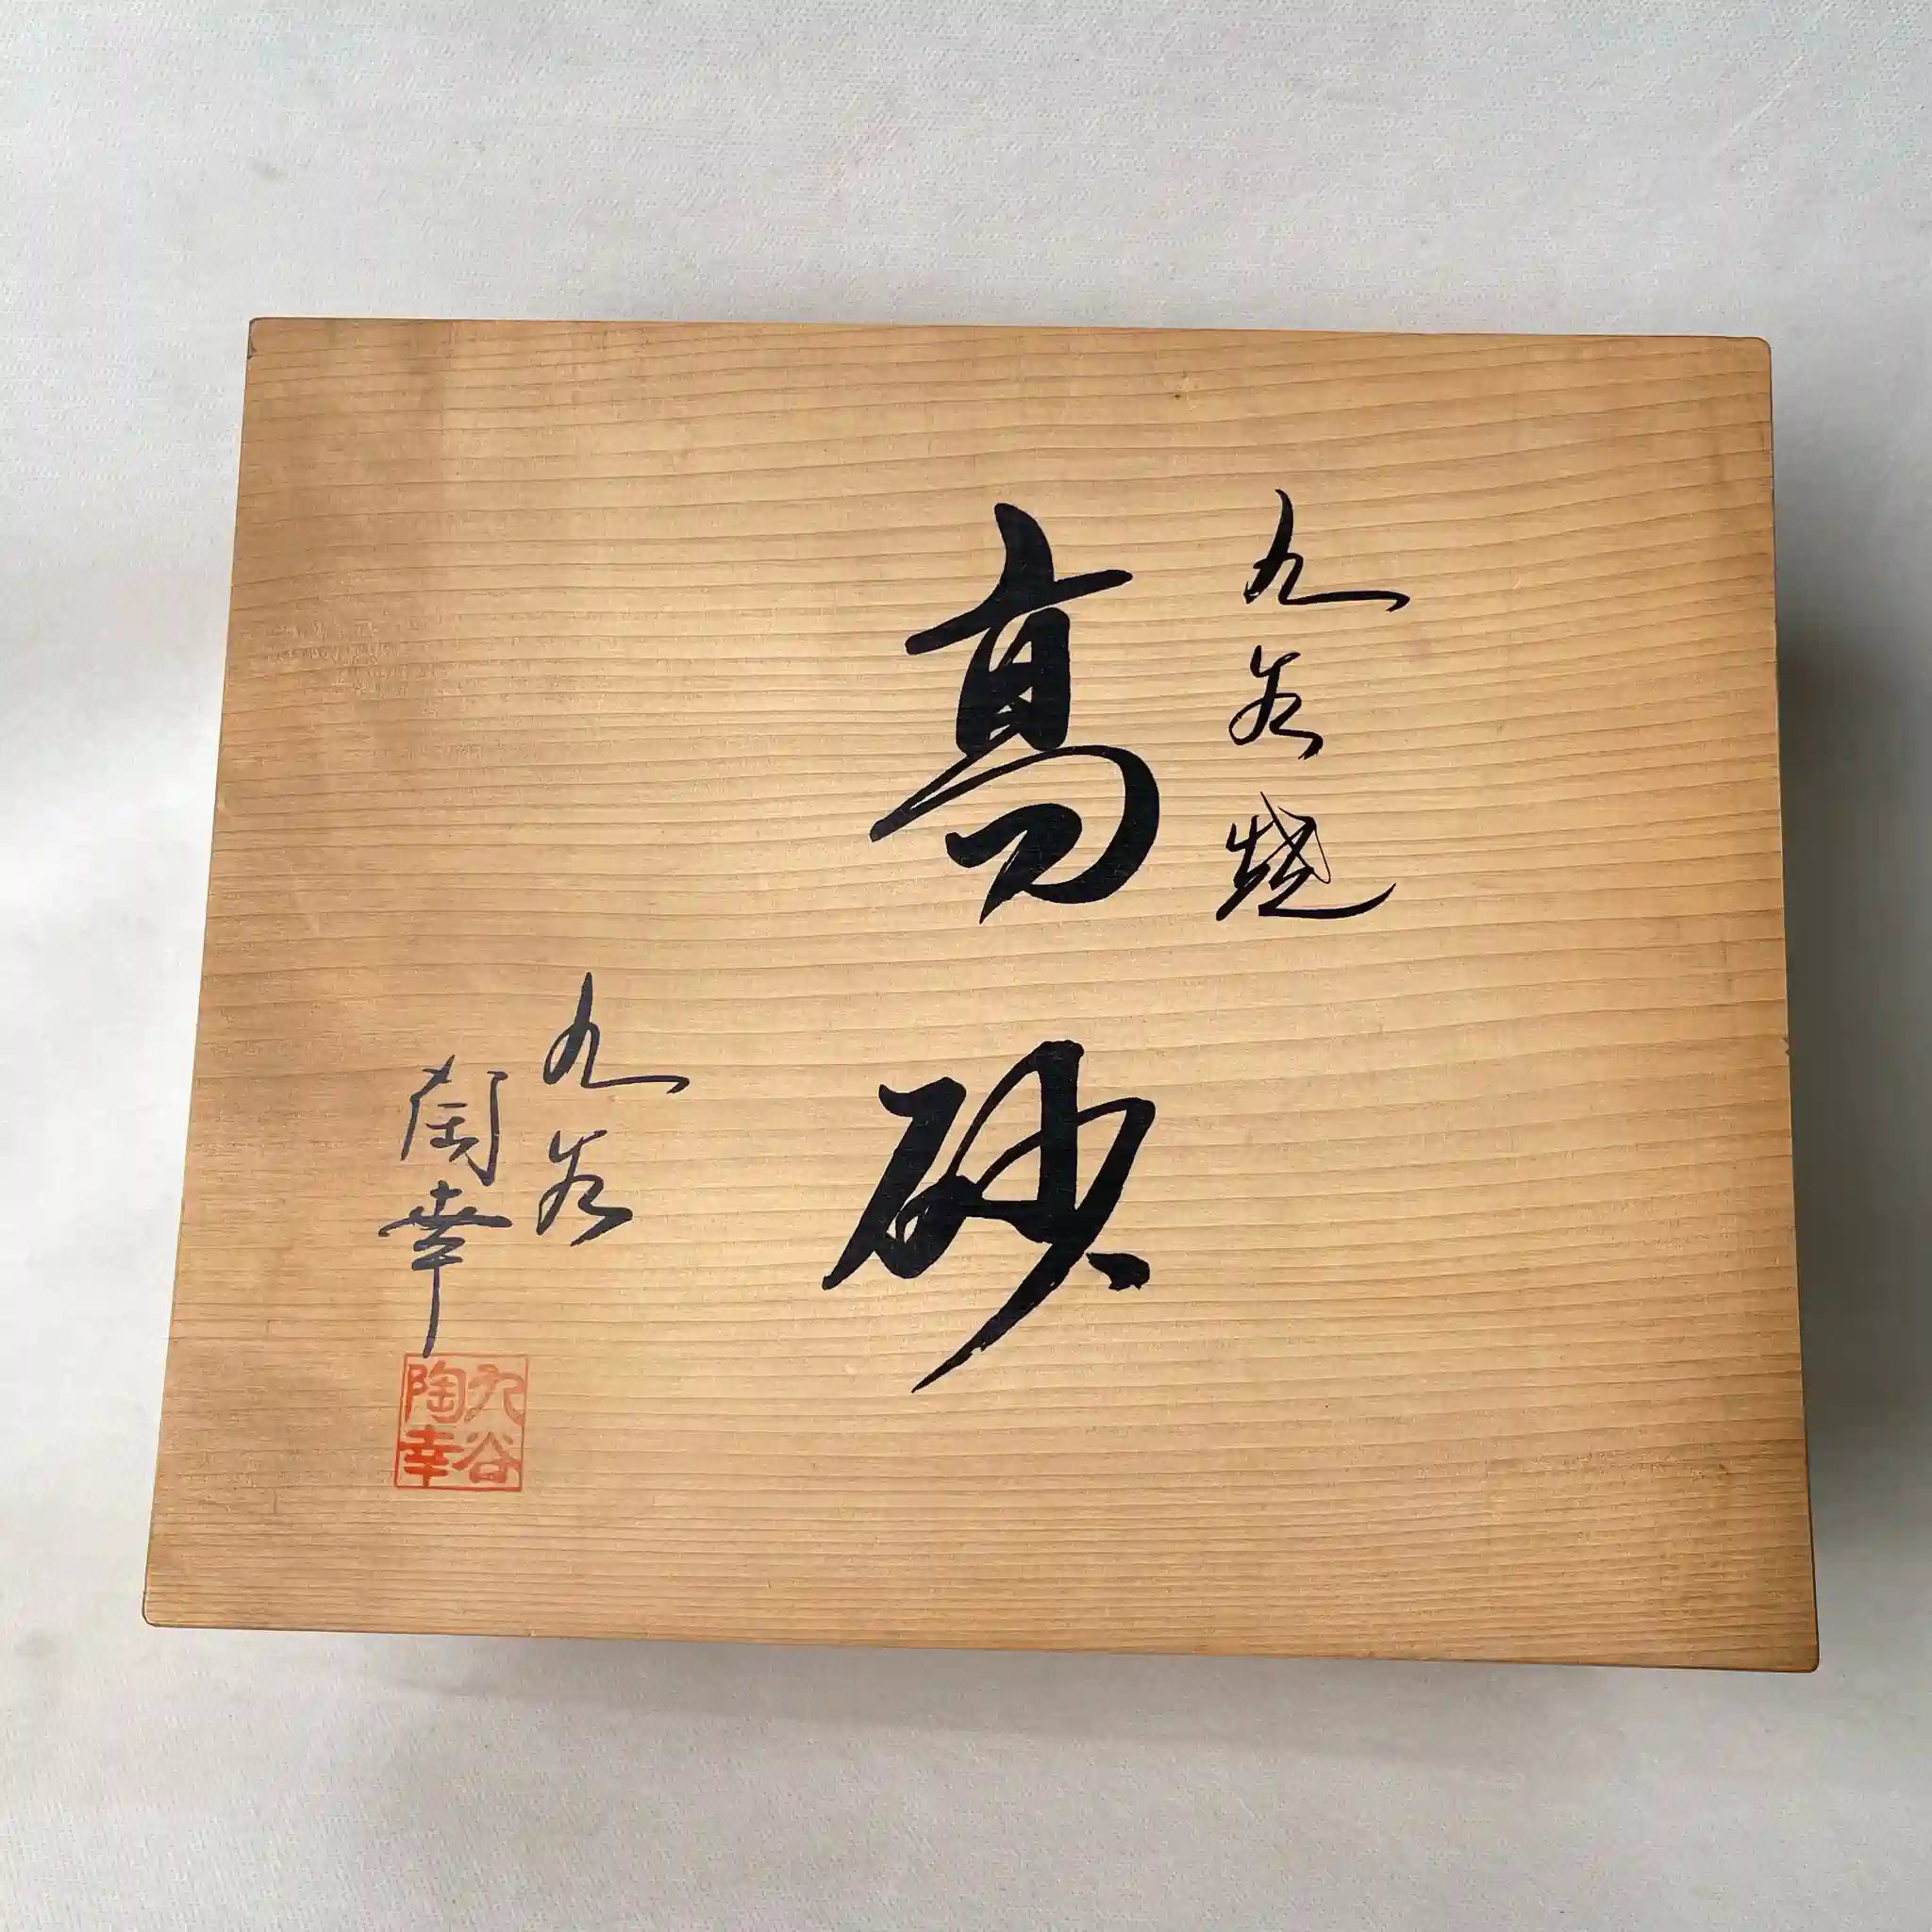 九谷焼
高砂
九谷
陶幸
九谷
陶幸